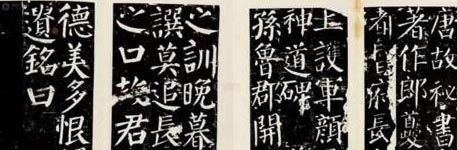 唐故秘書
著作郎夔
都督府長
上護軍顏
神道碑
孫魯郡開
之訓晚暮
譔莫追長
之口故君
德美多恨
銘曰